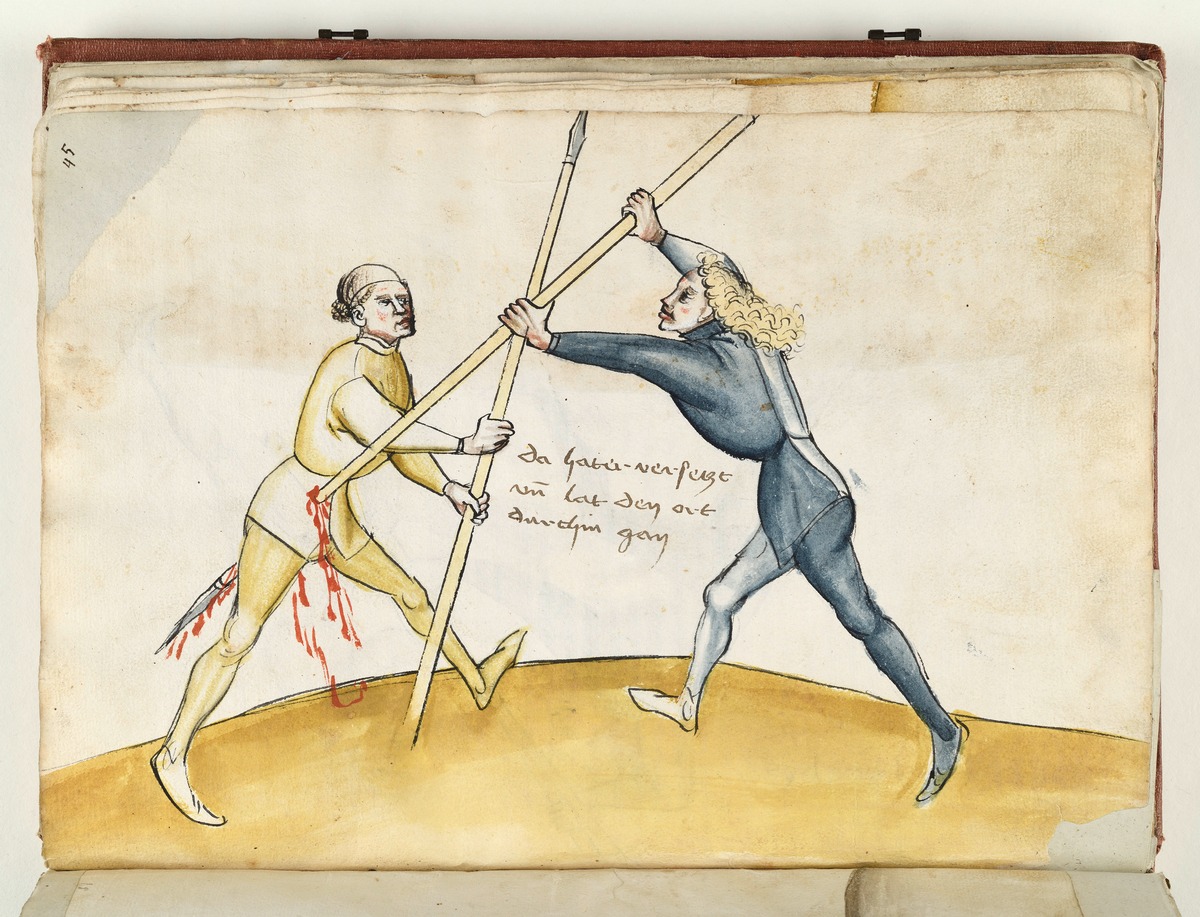 45
da hat er versetzt
vñ lat den ort
durchin gan